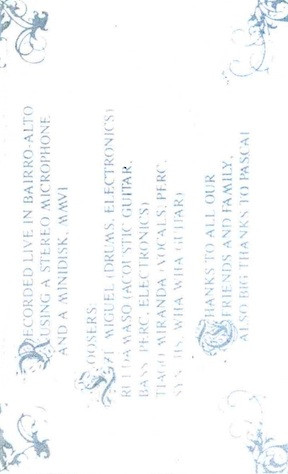 RECORDED LIVE IN BAIRRO-ALTO
USING A STEREO MICROPHONE
AND A MINIDISK, MMVI
LOOSERS:
ZÉ MIGUEL (DRUMS, ELECTRONICS)
RUI DAMASO (ACOUSTIC GUITAR,
BASS, PERC, ELECTRONICS)
TIAGO MIRANDA (VOCALS, PERC,
WHA WHA GUITAR)
THANKS TO ALL OUR
FRIENDS AND FAMILY,
ALSO BIG THANKS TO PASCAL